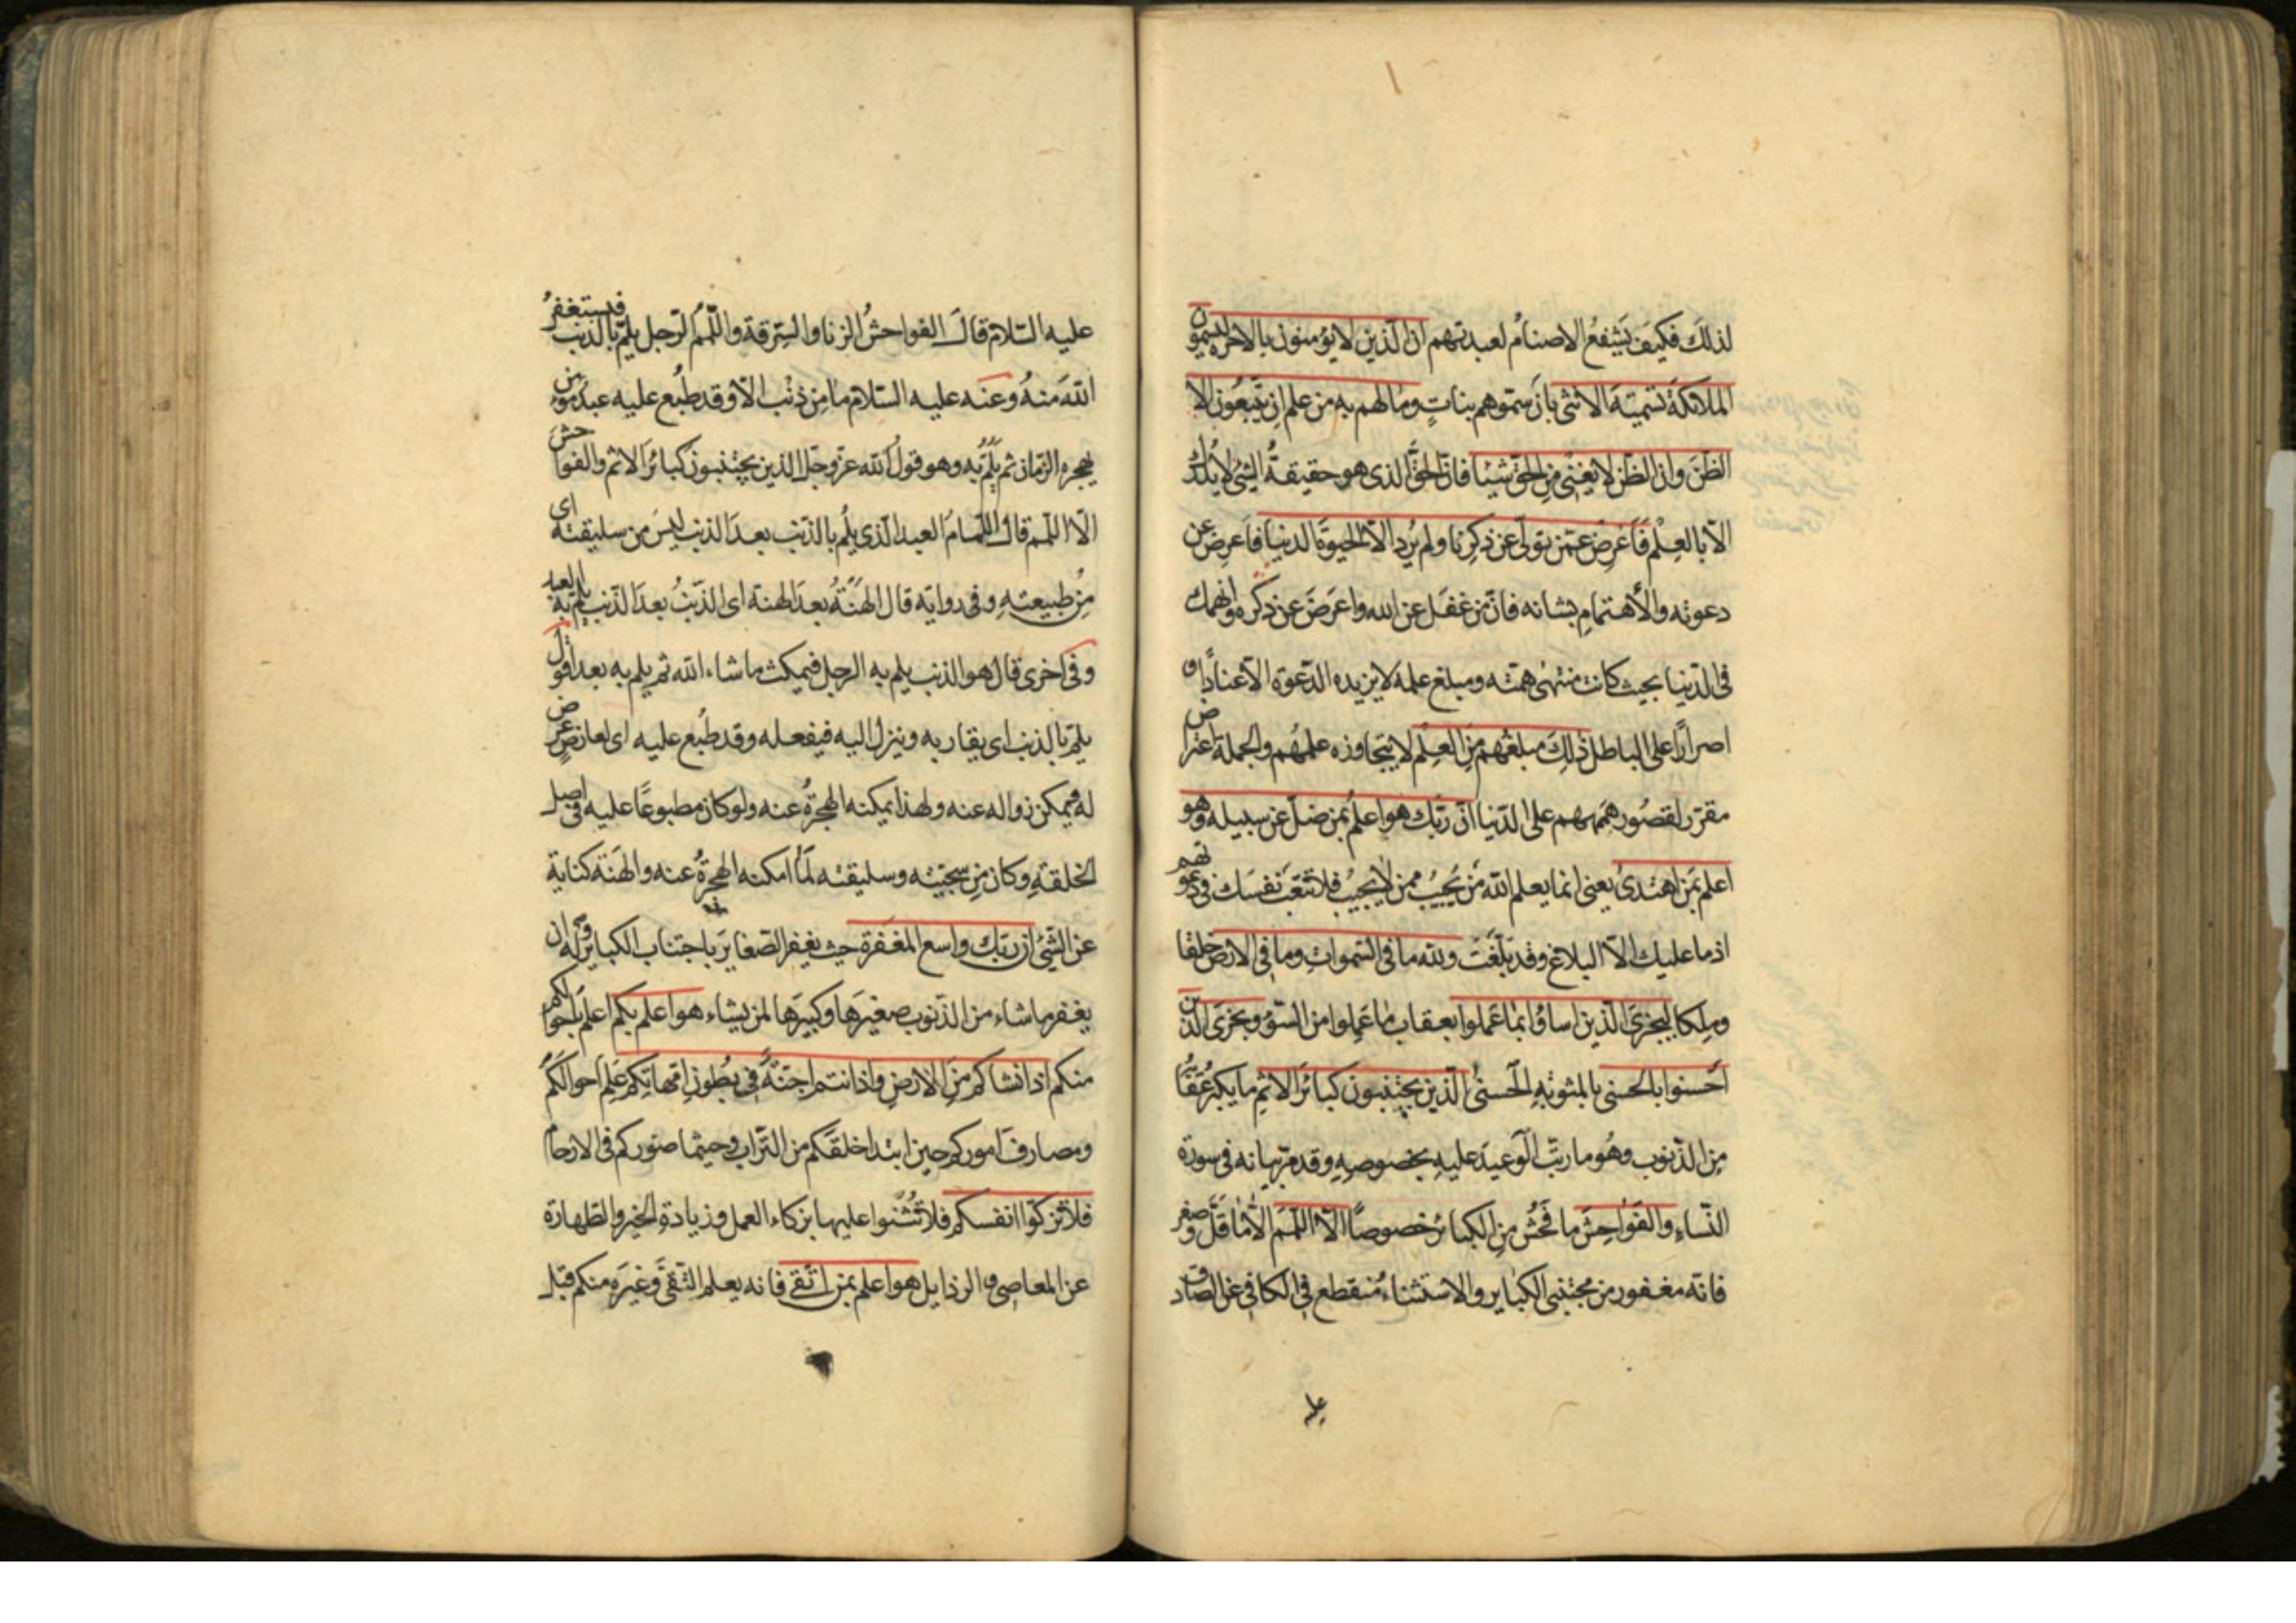 لذلك فكيف يشفع الاصنام لعبدتهم ان الذين لا يؤمنون بالاخرة ليسمون
الملائكة تسمية الانثى بان سموهم بنات وما لهم به من علم ان يتبعون الا
الظن وان الظن لا يغني من الحق شيئا فان الحق الذى هو حقيقة الشئ لا يدرك
الا بالعلم فاعرض عمن تولى عن ذكرنا ولم يرد الا الحيوة الدنيا فاعرض عن
دعوته والاهتمام بشانه فان من غفل عن الله واعرض عن ذكره وانهمك
فى الدنيا بحيث كانت منتهى همته ومبلغ علمه لا يزيده الدعوة الا عنادا و
اصرارا على الباطل ذلك مبلغهم من العلم لا يتجاوزه علمهم والجملة اعتراض
مقرر لقصور هممهم على الدنيا ان ربك هو اعلم بمن ضل عن سبيله وهو
اعلم بمن اهتدى يعنى انما يعلم الله من يجيب ممن لا يجيب فلا تتعب نفسك فى دعوتهم
اذ ما عليك الا البلاغ وقد بلغت ولله ما فى السموات وما فى الارض خلقا
وملكا ليجزى الذين اساؤا بما عملوا بعقاب ما عملوا من السوء ويجزى الذين
احسنوا بالحسنى بالمثوبة الحسنى الذين يجتنبون كبائر الاثم ما يكبر عقابه
من الذنوب وهو ما رتب الوعيد عليه بخصوصه وقد مر بيانه فى سورة
النساء والفواحش ما فحش من الكبائر خصوصا الا اللمم الا ما قل وصغر
فانه مغفور من مجتنبى الكباير والاستثناء منقطع فى الكافى عن الصادق
عليه
عليه السلام قال الفواحش الزنا والسرقة واللمم الرجل يلم بالذنب فيستغفر
الله منه وعنه عليه السلام ما من ذنب الا وقد طبع عليه عبد مؤمن
يهجره الزمان ثم يلم به وهو قول الله عز وجل الذين يجتنبون كبائر الاثم والفواحش
الا اللمم قال اللمام العبد الذى يلم بالذنب بعد الذنب ليس من سليقته اى
من طبيعته وفى رواية قال الهنة بعد الهنة اى الذنب بعد الذنب يلم به العبد
وفى اخرى قال هو الذنب يلم به الرجل فيمكث ما شاء الله ثم يلم به بعد اقول
يلم بالذنب اى يقاربه وينزل اليه فيفعله وقد طبع عليه اى لعارض عرض
له فيمكن زواله عنه ولهذا يمكنه الهجرة عنه ولو كان مطبوعا عليه فى اصل
الخلقة وكان من سجيته وسليقته لما امكنه الهجرة عنه والهنة كناية
عن الشئ ان ربك واسع المغفرة حيث يغفر الصغاير باجتناب الكباير وله ان
يغفر ما شاء من الذنوب صغيرها وكبيرها لمن يشاء هو اعلم بكم اعلم باحوالكم
منكم اذ انشاكم من الارض واذ انتم اجنة فى بطون امهاتكم علم احوالكم
ومصارف اموركم حين ابتدا خلقكم من التراب وحيثما صوركم فى الارحام
فلا تزكوا انفسكم فلا تثنوا عليها بزكاء العمل وزيادة الخير والطهارة
عن المعاصى والرذايل هو اعلم بمن اتقى فانه يعلم التقى وغيره منكم قبل